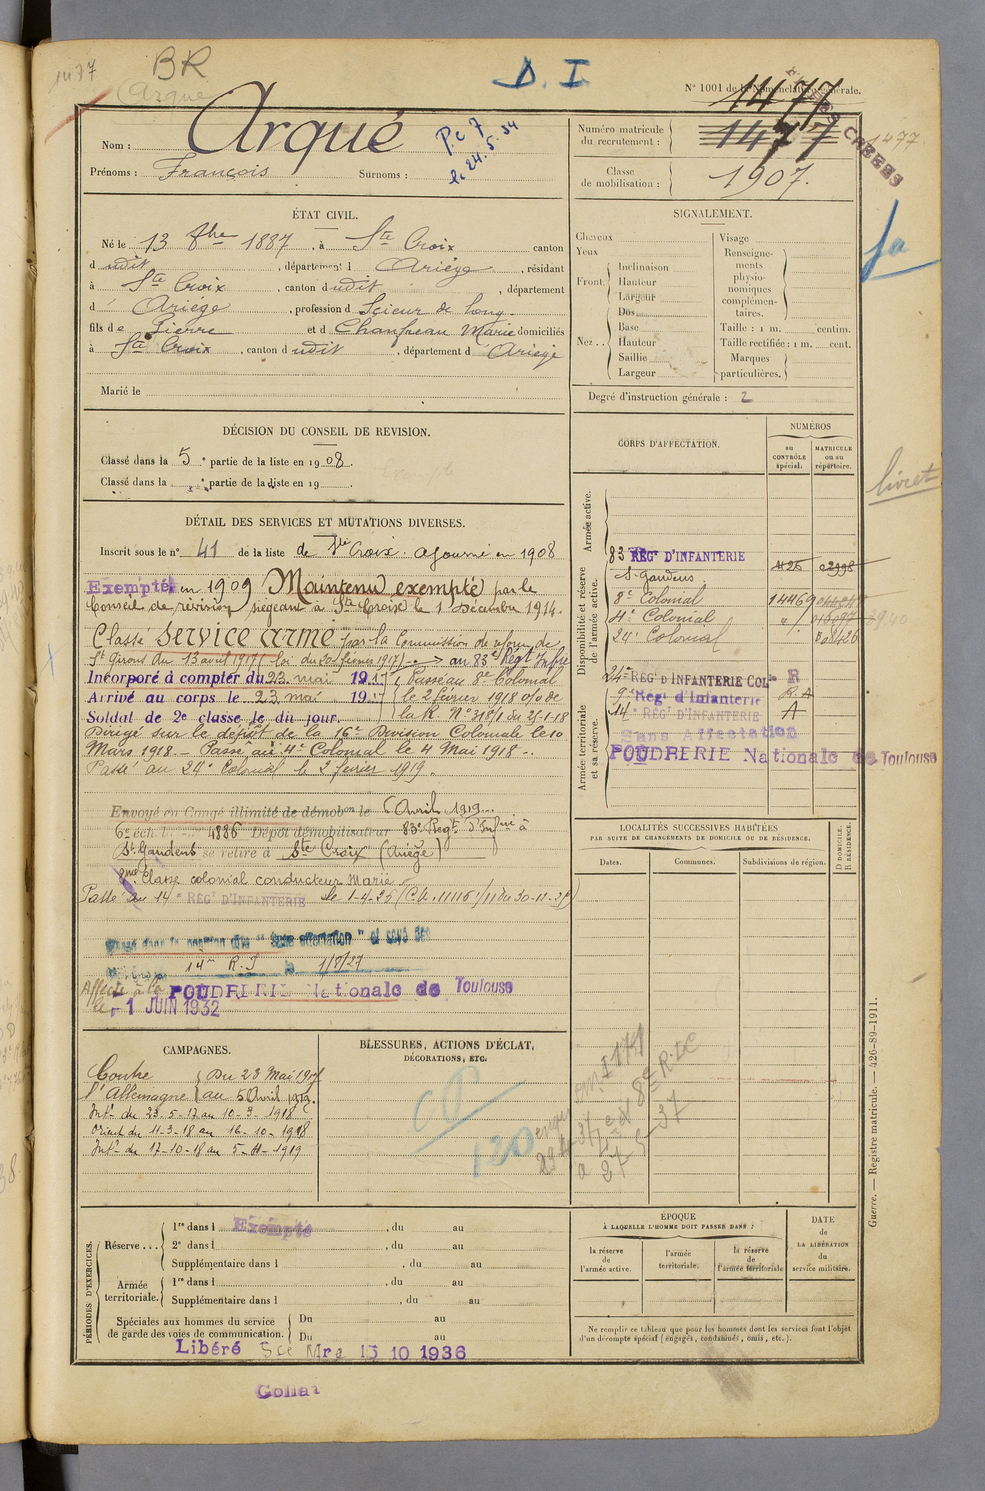 1477
BR
Arqué
D. I
N° 1001 de la Nomenclature générale.
1477
Nom : Arqué
P.C 7
le 24.5.34
Prénoms : François Surnoms :
Numéro matricule du recrutement : 1477
1477
Classe de mobilisation : 1907.
ÉTAT CIVIL.
Né le 13 8bre 1887, à Ste Croix canton
dudit, département d Ariège, résidant
à Ste Croix, canton dudit, département
d'Ariège, profession d Scieur de long
fils de Pierre et d Chanfreau Marie domiciliés
à Ste Croix, canton dudit, département d'Ariège
Marié le
SIGNALEMENT.
Cheveux
Yeux
Front. Inclinaison
Hauteur
Largeur
Nez.. Dos
Base
Hauteur
Saillie
Largeur
Visage
Renseignements physionomiques complémentaires.
Taille : 1 m. centim.
Taille rectifiée : 1 m. cent.
Marques particulières.
Degré d'instruction générale : 2
DÉCISION DU CONSEIL DE REVISION.
Classé dans la 5e partie de la liste en 1908.
Classé dans la e partie de la liste en 19
DÉTAIL DES SERVICES ET MUTATIONS DIVERSES.
Inscrit sous le n° 41 de la liste de Ste Croix. Ajourné en 1908
Exempté en 1909 Maintenu exempté par le
Conseil de révision siégeant à Ste Croix le 1 Décembre 1914.
Classé service armé par la Commission de réforme de
St Girons du 13 avril 1917 (loi du 20 février 1917) au 83e Régt Infie
Incorporé à compter du 23 mai 1917 Passé au 8e Colonial
Arrivé au corps le 23 mai 1917 le 2 février 1918
Soldat de 2e classe le dit jour.
Dirigé sur le dépôt de la 16e Division Coloniale le 10
Mars 1918 - Passé au 4e Colonial le 4 Mai 1918.
Passé au 24e Colonial le 2 février 1919.
Envoyé en Congé illimité de démobon le 6 Avril 1919
6e éch. 4886 Dépôt démobilisateur 83e Régt d'Infrie à
St Gaudens se retire à Ste Croix (Ariège)
2me Classe colonial conducteur Marié
Passé au 14e RÉGt D'INFANTERIE le 1-4-25
14me R.I le 1/8/27
Affecté à la POUDRERIE Nationale de Toulouse
le 1 JUIN 1932
CORPS D'AFFECTATION.
NUMÉROS
au CONTRÔLE spécial.
MATRICULE ou au répertoire.
Armée active.
Disponibilité et réserve de l'armée active.
Armée territoriale et sa réserve.
83 RÉGt D'INFANTERIE
St Gaudens
8e Colonial 14469
4e Colonial
24e Colonial
24e RÉGt D'INFANTERIE COLle R
9e Régt d'Infanterie R.A
14e RÉGt D'INFANTERIE A
Sans Affectation
POUDRERIE Nationale de Toulouse
livret
LOCALITÉS SUCCESSIVES HABITÉES
PAR SUITE DE CHANGEMENTS DE DOMICILE OU DE RÉSIDENCE.
Dates. Communes. Subdivisions de région.
D DOMICILE. R RÉSIDENCE.
CAMPAGNES.
Contre l'Allemagne Du 23 Mai 1917
au 5 Avril 1919.
Intr du 23-5-17 au 10-3-1918
Orient du 11-3-18 au 16-10-1918
Intr du 17-10-18 au 5-4-1919
BLESSURES, ACTIONS D'ÉCLAT, DÉCORATIONS, ETC.
CP
120
PÉRIODES D'EXERCICES.
Réserve... 1re dans l Exempté, du au
2e dans l, du au
Supplémentaire dans l, du au
Armée territoriale. 1re dans l, du au
Supplémentaire dans l, du au
Spéciales aux hommes du service de garde des voies de communication. Du au
Du au
Libéré Sce Mre 15 10 1936
ÉPOQUE
À LAQUELLE L'HOMME DOIT PASSER DANS :
la réserve de l'armée active.
l'armée territoriale.
la réserve de l'armée territoriale
DATE de LA LIBÉRATION du service militaire.
Ne remplir ce tableau que pour les hommes dont les services font l'objet
d'un décompte spécial (engagés, condamnés, omis, etc.).
Guerre. — Registre matricule. — 426-89-1911.